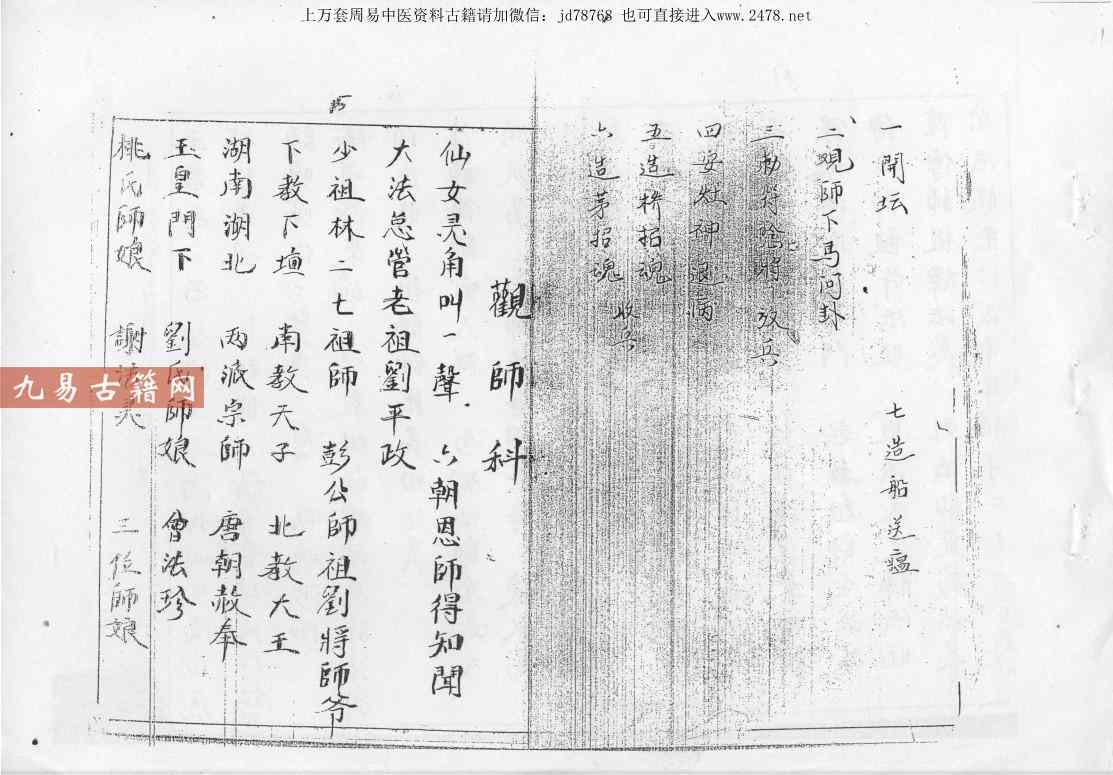 上万套周易中医资料古籍请加微信：jd78768 也可直接进入www.2478.net
一開坛
二覌师下馬问卦
三勅符陰将下攻兵
四安灶神退病
五造牌招魂
六造茅招魂 收兵
七造船送瘟
觀師科
仙女灵角叫一聲 六朝恩師得知聞
大法总管老祖劉平政
少祖林二七祖師 彭公師祖劉將師爷
下教下壇 南教天子 北教大王
湖南湖北 兩派宗師 唐朝赦奉
玉皇門下 劉氏師娘 曾法珍
桃氏師娘 謝法灵 三位師娘
九易古籍网